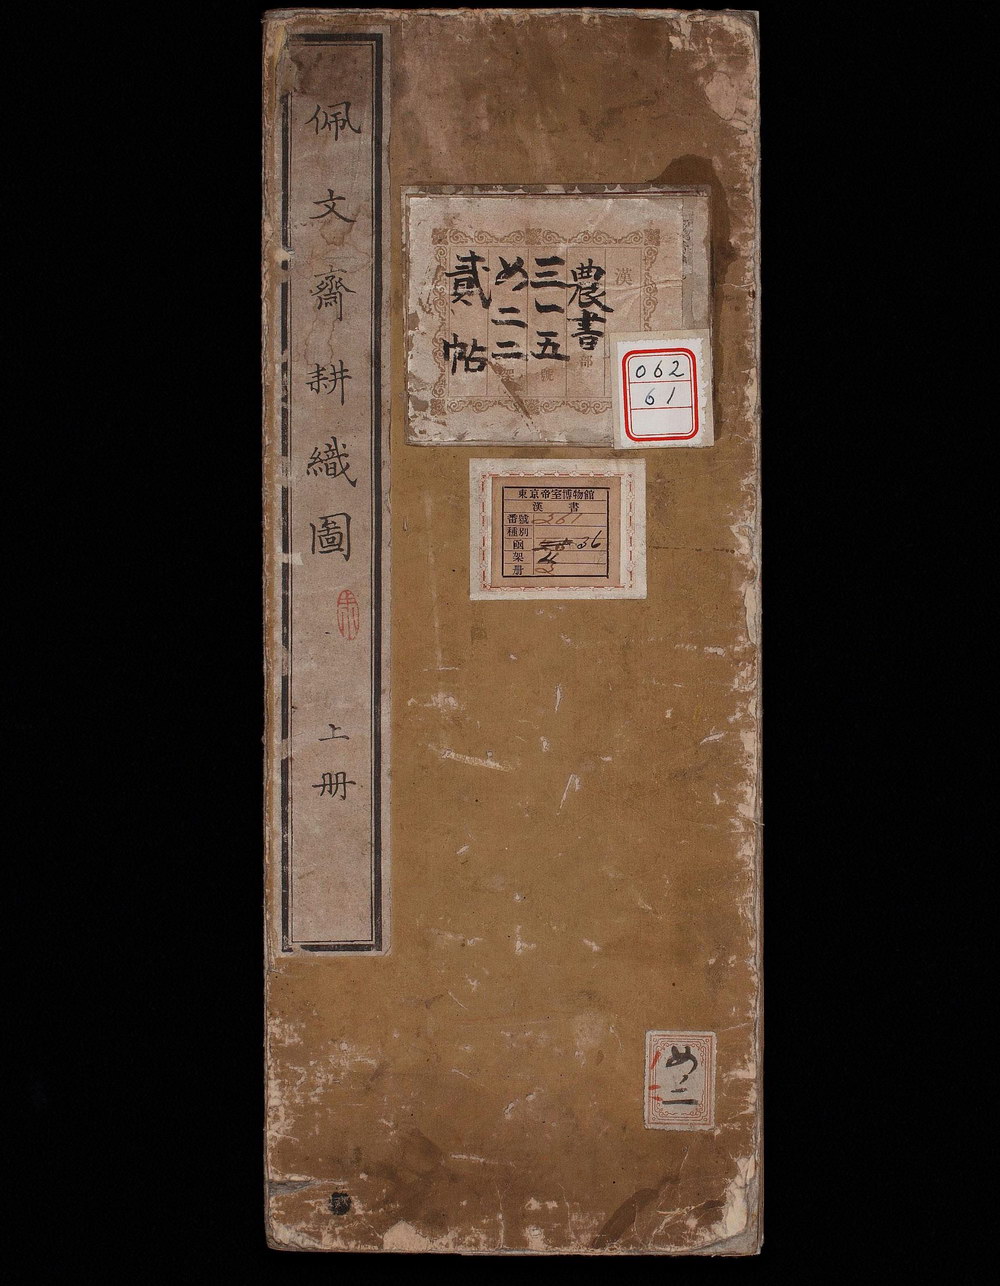 佩文齋耕織圖
上册
漢
農書
部
三一五
號
め二二
貳帖
062
61
東京帝室博物館
漢書
番號 261
種別
函 36
架
册 2
め二